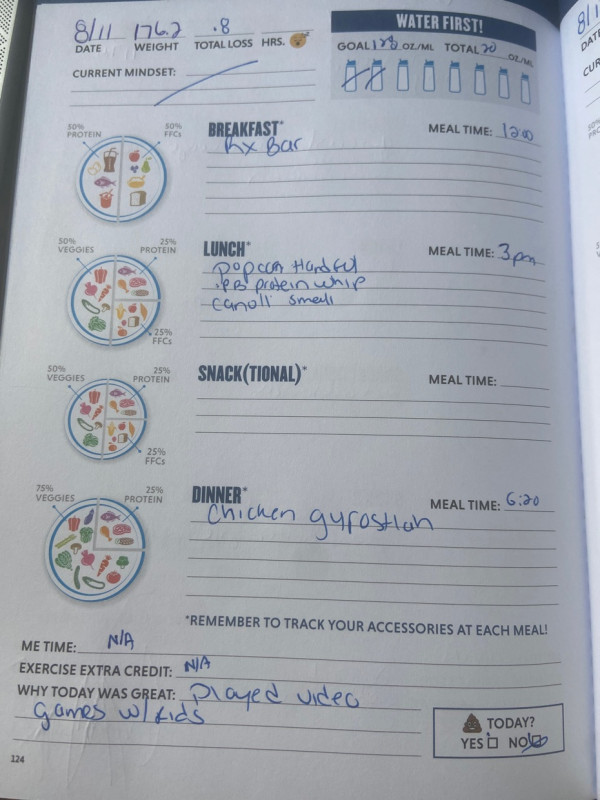 8/11 176.2 .8
DATE WEIGHT TOTAL LOSS HRS.
CURRENT MINDSET:
WATER FIRST!
GOAL 128 OZ/ML TOTAL 20 OZ/ML
50% PROTEIN
50% FFCs
BREAKFAST*
MEAL TIME: 1200
Rx Bar
50% VEGGIES
25% PROTEIN
25% FFCs
LUNCH*
MEAL TIME: 3pm
popcorn Handful
PB protein whip
canoli small
50% VEGGIES
25% PROTEIN
25% FFCs
SNACK(TIONAL)*
MEAL TIME:
75% VEGGIES
25% PROTEIN
DINNER*
MEAL TIME: 6:20
Chicken
*REMEMBER TO TRACK YOUR ACCESSORIES AT EACH MEAL!
ME TIME: N/A
EXERCISE EXTRA CREDIT: N/A
WHY TODAY WAS GREAT: Played video
games w/ kids
TODAY?
YES NO
124
8/11
DATE
CUR